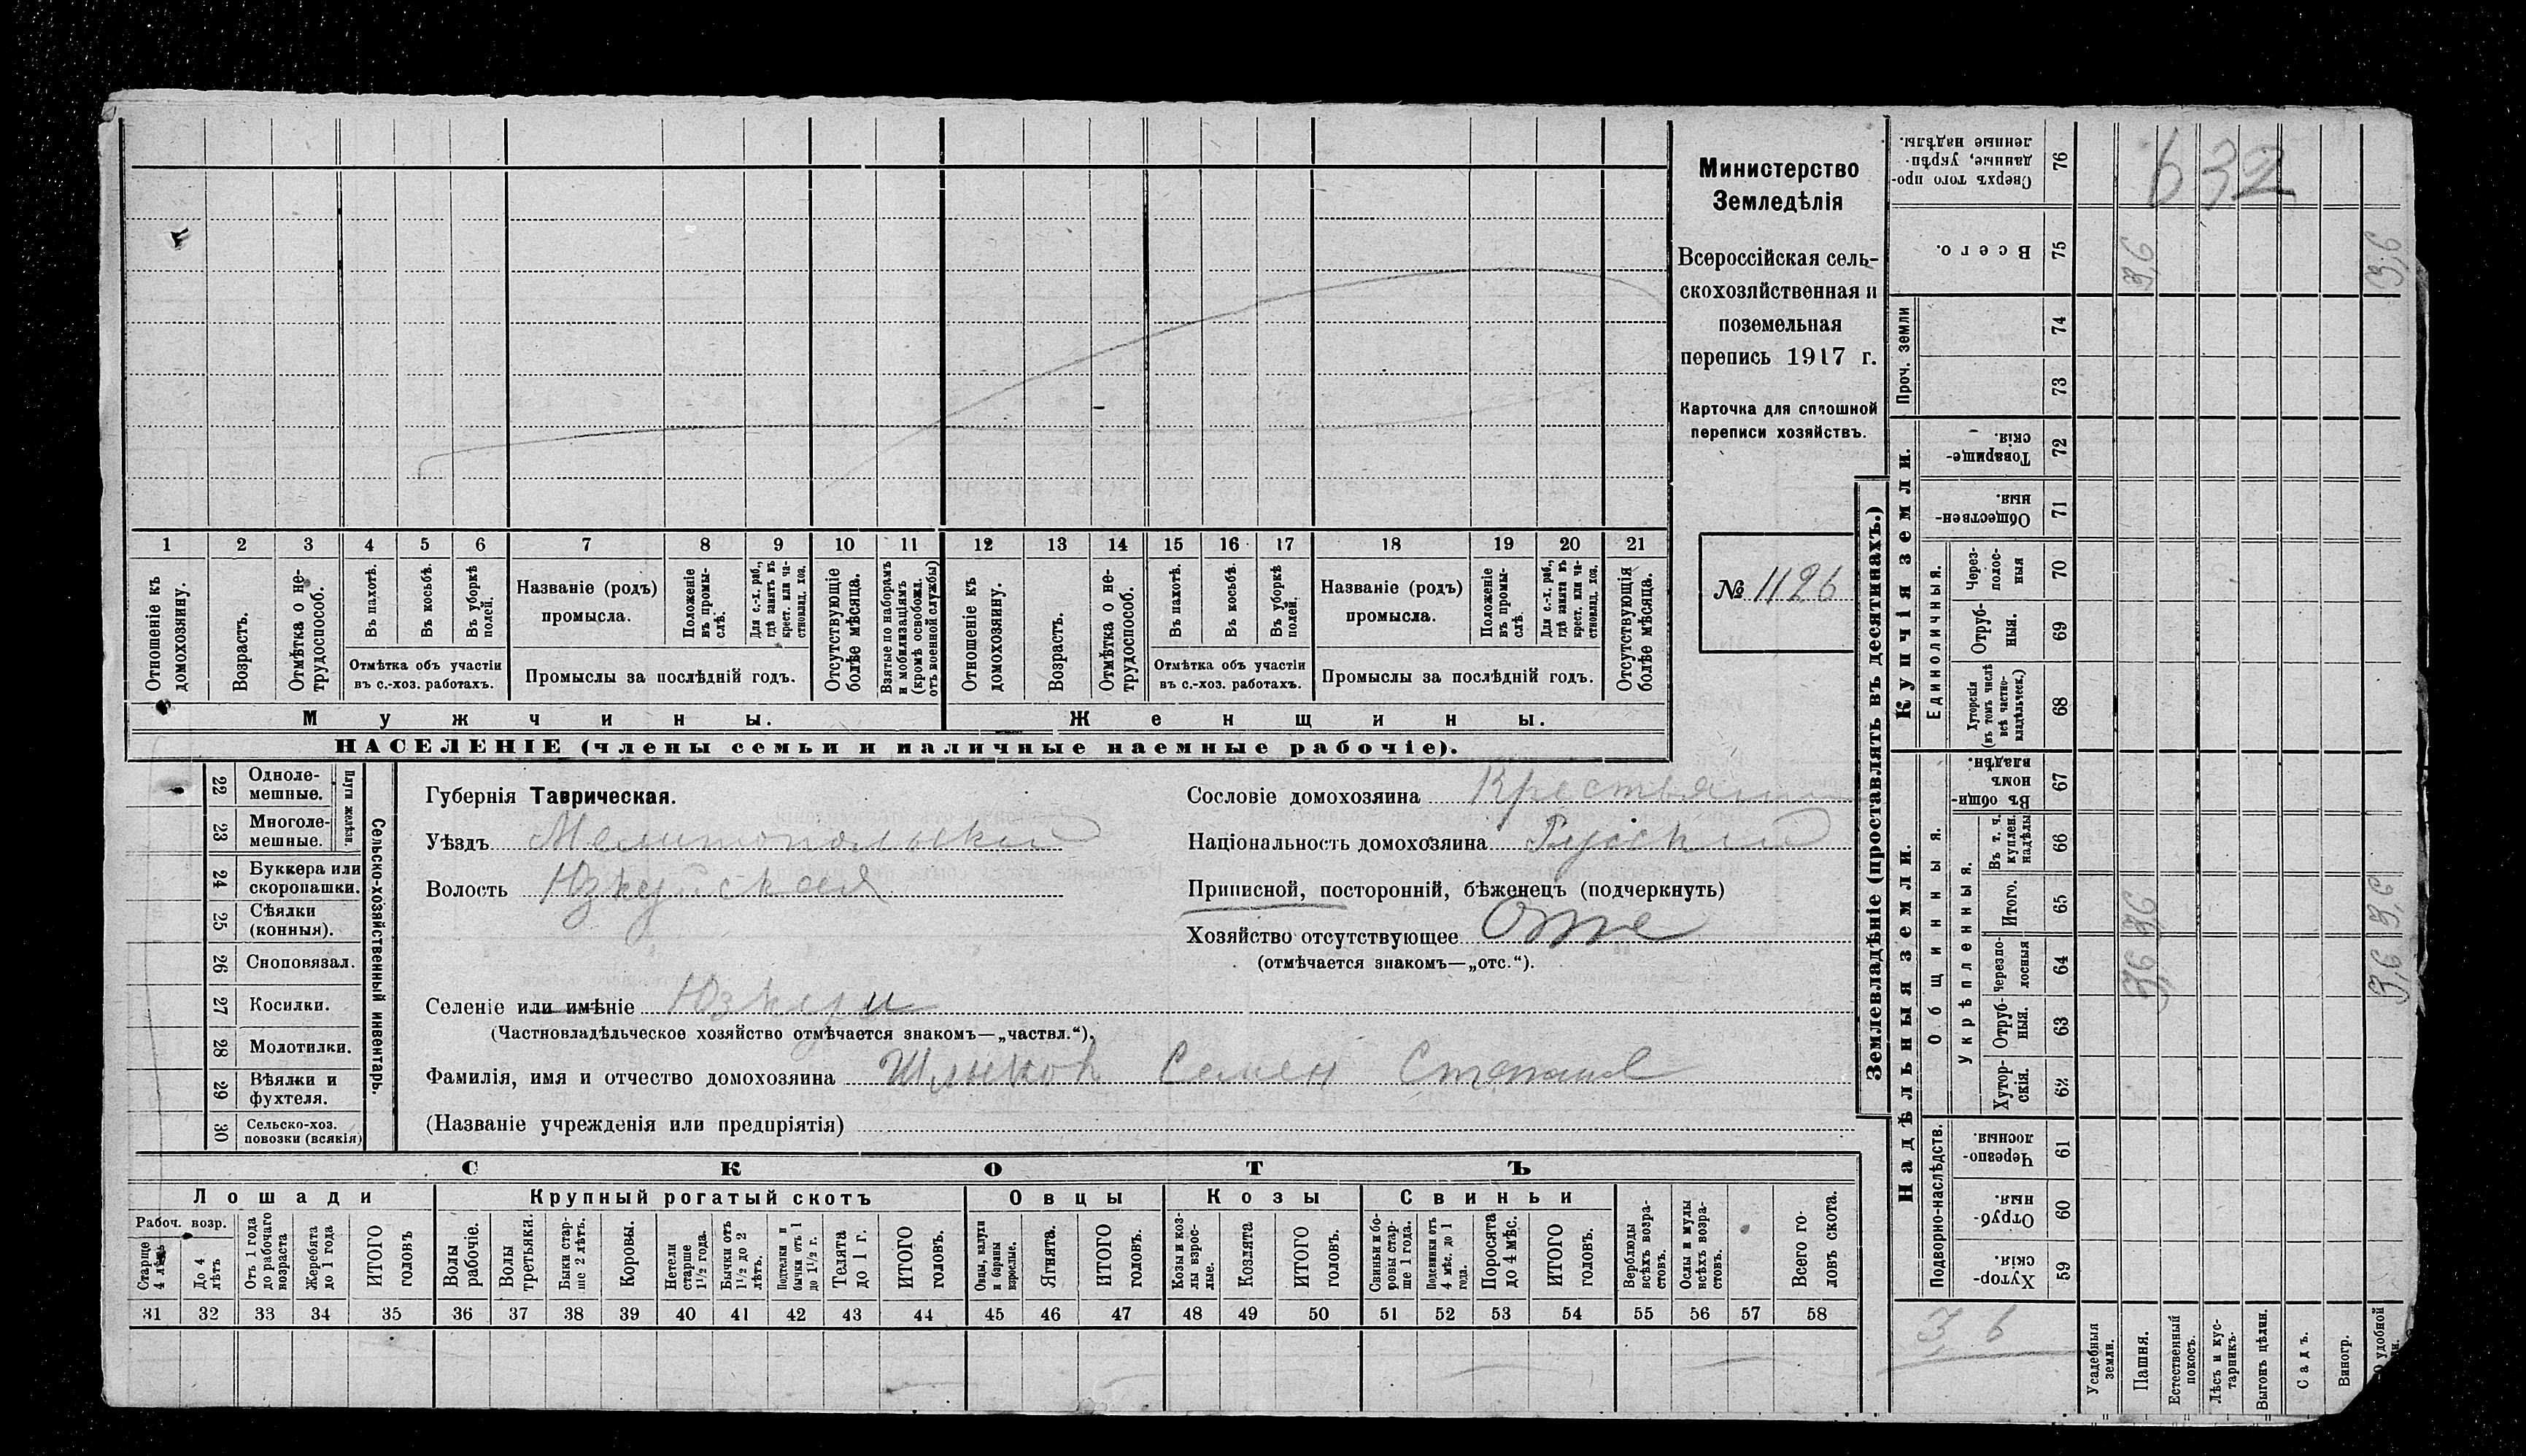 Министерство
Земледѣлія
Всероссійская сель-
скохозяйственная и
поземельная
перепись 1917 г.
Карточка для сплошной
переписи хозяйствъ.
№ 1126
1 2 3 4 5 6 7 8 9 10 11 12 13 14 15 16 17 18 19 20 21
Отношеніе къ домохозяину.
Возрастъ.
Отмѣтка о не-трудоспособ.
Въ пахотѣ.
Въ косьбѣ.
Въ уборкѣ полей.
Отмѣтка объ участіи
въ с.-хоз. работахъ.
Названіе (родъ)
промысла.
Положеніе въ промы-слѣ.
Для с.-х. раб., гдѣ занятъ въ крест. или ча-стновлад. хоз.
Промыслы за послѣдній годъ.
Отсутствующіе болѣе мѣсяца.
Взятые по наборамъ и мобилизаціямъ (кромѣ освобожд. отъ военной службы)
Отношеніе къ домохозяину.
Возрастъ.
Отмѣтка о не-трудоспособ.
Въ пахотѣ.
Въ косьбѣ.
Въ уборкѣ полей.
Отмѣтка объ участіи
въ с.-хоз. работахъ.
Названіе (родъ)
промысла.
Положеніе въ промы-слѣ.
Для с.-х. раб., гдѣ занята въ крест. или ча-стновлад. хоз.
Промыслы за послѣдній годъ.
Отсутствующія болѣе мѣсяца.
Мужчины. Женщины.
НАСЕЛЕНІЕ (члены семьи и наличные наемные рабочіе).
22 Одноле-мешные.
23 Многоле-мешные.
Плуги желѣзн.
24 Буккера или скоропашки.
25 Сѣялки (конныя).
26 Сноповязал.
27 Косилки.
28 Молотилки.
29 Вѣялки и фухтеля.
30 Сельско-хоз. повозки (всякія)
Сельско-хозяйственный инвентарь.
Губернія Таврическая.
Уѣздъ Мелитопольский
Волость Юзкуйская
Сословіе домохозяина Крестьянин
Національность домохозяина Руский
Приписной, посторонній, бѣженецъ (подчеркнуть)
Хозяйство отсутствующее Отс
(отмѣчается знакомъ—„отс.“).
Селеніе или имѣніе Юзкуи
(Частновладѣльческое хозяйство отмѣчается знакомъ—„частвл.“).
Фамилія, имя и отчество домохозяина Семен
(Названіе учрежденія или предпріятія)
СКОТЪ
Лошади Крупный рогатый скотъ Овцы Козы Свиньи
Рабоч. возр.
Старше 4 лѣтъ
До 4 лѣтъ
Отъ 1 года до рабочаго возраста
Жеребята до 1 года
ИТОГО головъ
Волы рабочіе.
Волы третьяки.
Быки стар-ше 2 лѣтъ.
Коровы.
Нетели старше 1 1/2 года.
Бычки отъ 1 1/2 до 2 лѣтъ.
Подтелки и бычки отъ 1 до 1 1/2 г.
Телята до 1 г.
ИТОГО головъ.
Овцы, валухи и бараны взрослые.
Ягнята.
ИТОГО головъ.
Козы и коз-лы взрос-лые.
Козлята
ИТОГО головъ.
Свиньи и бо-ровы стар-ше 1 года.
Подсвинки отъ 4 мѣс. до 1 года.
Поросята до 4 мѣс.
ИТОГО головъ.
Верблюды всѣхъ возра-стовъ.
Ослы и мулы всѣхъ возра-стовъ.
Всего го-ловъ скота.
31 32 33 34 35 36 37 38 39 40 41 42 43 44 45 46 47 48 49 50 51 52 53 54 55 56 57 58
Землевладѣніе (проставлять въ десятинахъ.)
Сверхъ того про-данные, укрѣп-ленные надѣлы. 76
632
Всего. 75 3,6 3,6
Проч. земли 74 73
Купчія земли.
Товарище-скія. 72
Обществен-ныя. 71
Единоличныя.
Через-полос-ныя 70
Отруб-ныя. 69
Хуторскія (въ томъ числѣ всѣ частно-владѣльческ.) 68
Надѣльныя земли.
Общинныя.
Въ общин-номъ владѣн. 67
Укрѣпленныя.
Въ т. ч. куплен. надѣлы 66
Итого. 65 3,6 3,6
Черезпо-лосныя 64 3,6 3,6
Отруб-ныя. 63
Хутор-скія. 62
Подворно-наслѣдств.
Черезпо-лосныя. 61
Отруб-ныя. 60
Хутор-скія. 59
3,6
Усадебныя земли.
Пашня.
Естественный покосъ.
Лѣсъ и кус-тарникъ.
Выгонъ цѣлин.
Садъ.
Виногр.
удобной